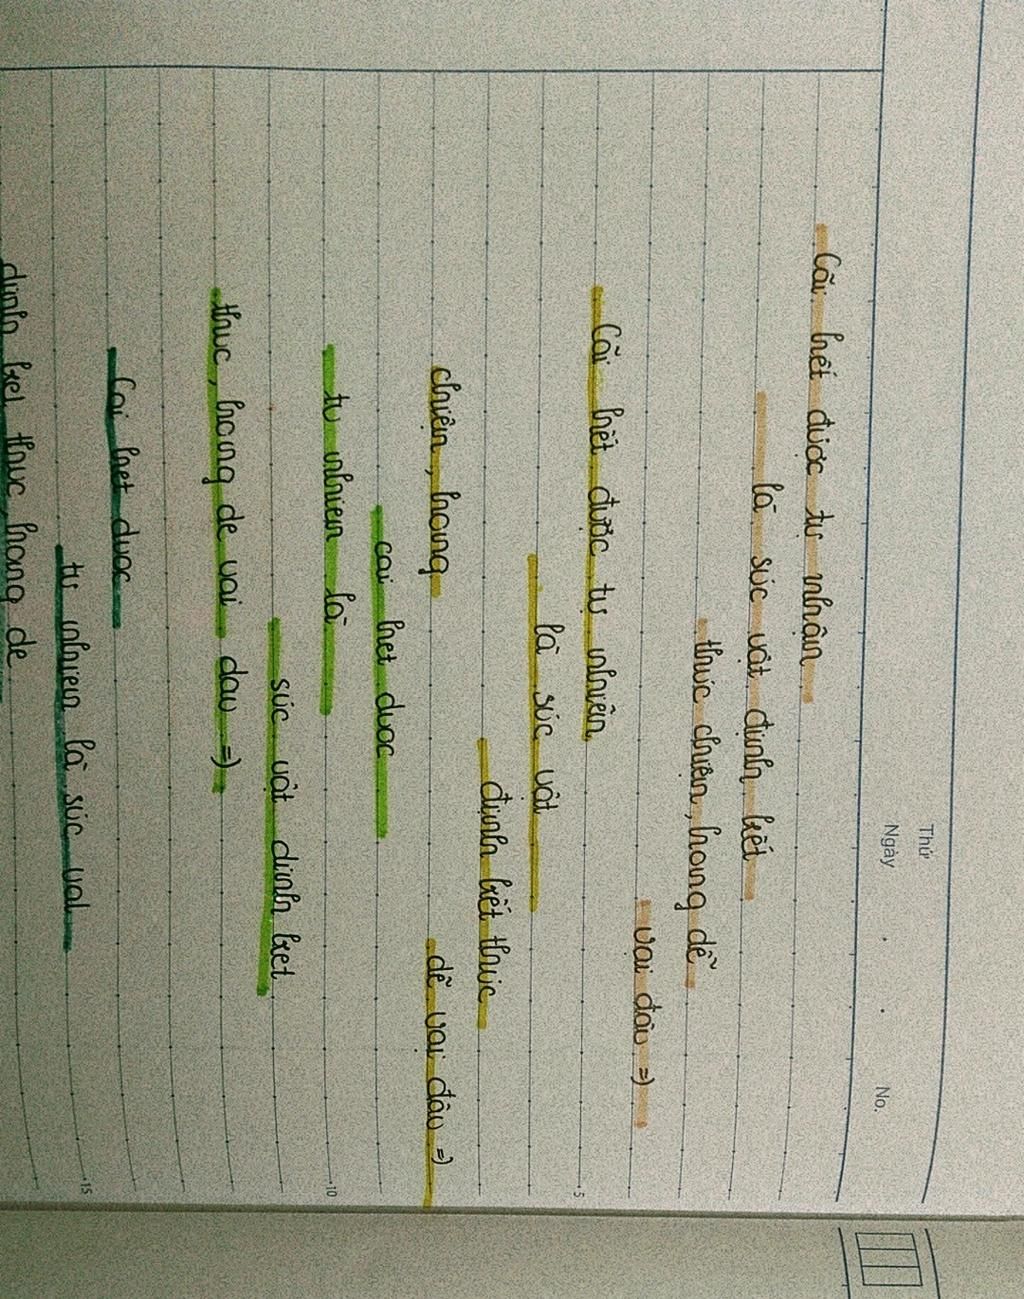 Thứ
Ngày . . No.
Cãi hết được tự nhận
là súc vật định kết
thúc chuyện, hong dễ
vại đâu =)
Cãi hết được tự nhiên
là súc vật
định kết thúc
chuyện, hong dễ vại đâu =)
cai het duoc
tu nhien là
súc vật dinh ket
thuc, hong de vai dau =)
Cai het duoc
tu nhien là súc vat
dinh ket thuc, hong de
5
10
15